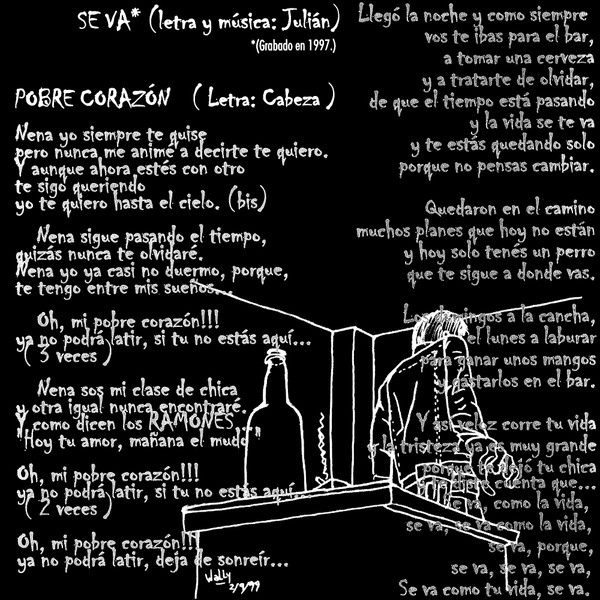 SE VA* (letra y música: Julián)
*(Grabado en 1997.)
Llegó la noche y como siempre
vos te ibas para el bar,
a tomar una cerveza
y a tratarte de olvidar,
de que el tiempo está pasando
y la vida se te va
y te estás quedando solo
porque no pensas cambiar.
Quedaron en el camino
muchos planes que hoy no están
y hoy solo tenés un perro
que te sigue a donde vas.
Los domingos a la cancha,
el lunes a laburar
para ganar unos mangos
y gastarlos en el bar.
Y así veloz corre tu vida
y la tristeza ya es muy grande
porque te dejó tu chica
te diste cuenta que...
se va, como la vida,
se va, se va como la vida,
se va, porque,
se va, se va, se va,
Se va como tu vida, se va.
POBRE CORAZÓN ( Letra: Cabeza )
Nena yo siempre te quise
pero nunca me animé a decirte te quiero.
Y aunque ahora estés con otro
te sigo queriendo
yo te quiero hasta el cielo. (bis)
Nena sigue pasando el tiempo,
quizás nunca te olvidaré.
Nena yo ya casi no duermo, porque,
te tengo entre mis sueños...
Oh, mi pobre corazón!!!
ya no podrá latir, si tu no estás aquí...
( 3 veces )
Nena sos mi clase de chica
y otra igual nunca encontraré.
Y como dicen los RAMONES...
"Hoy tu amor, mañana el mundo"
Oh, mi pobre corazón!!!
ya no podrá latir, si tu no estás aquí...
( 2 veces )
Oh, mi pobre corazón!!!
ya no podrá latir, deja de sonreír...
Wally
2/9/99